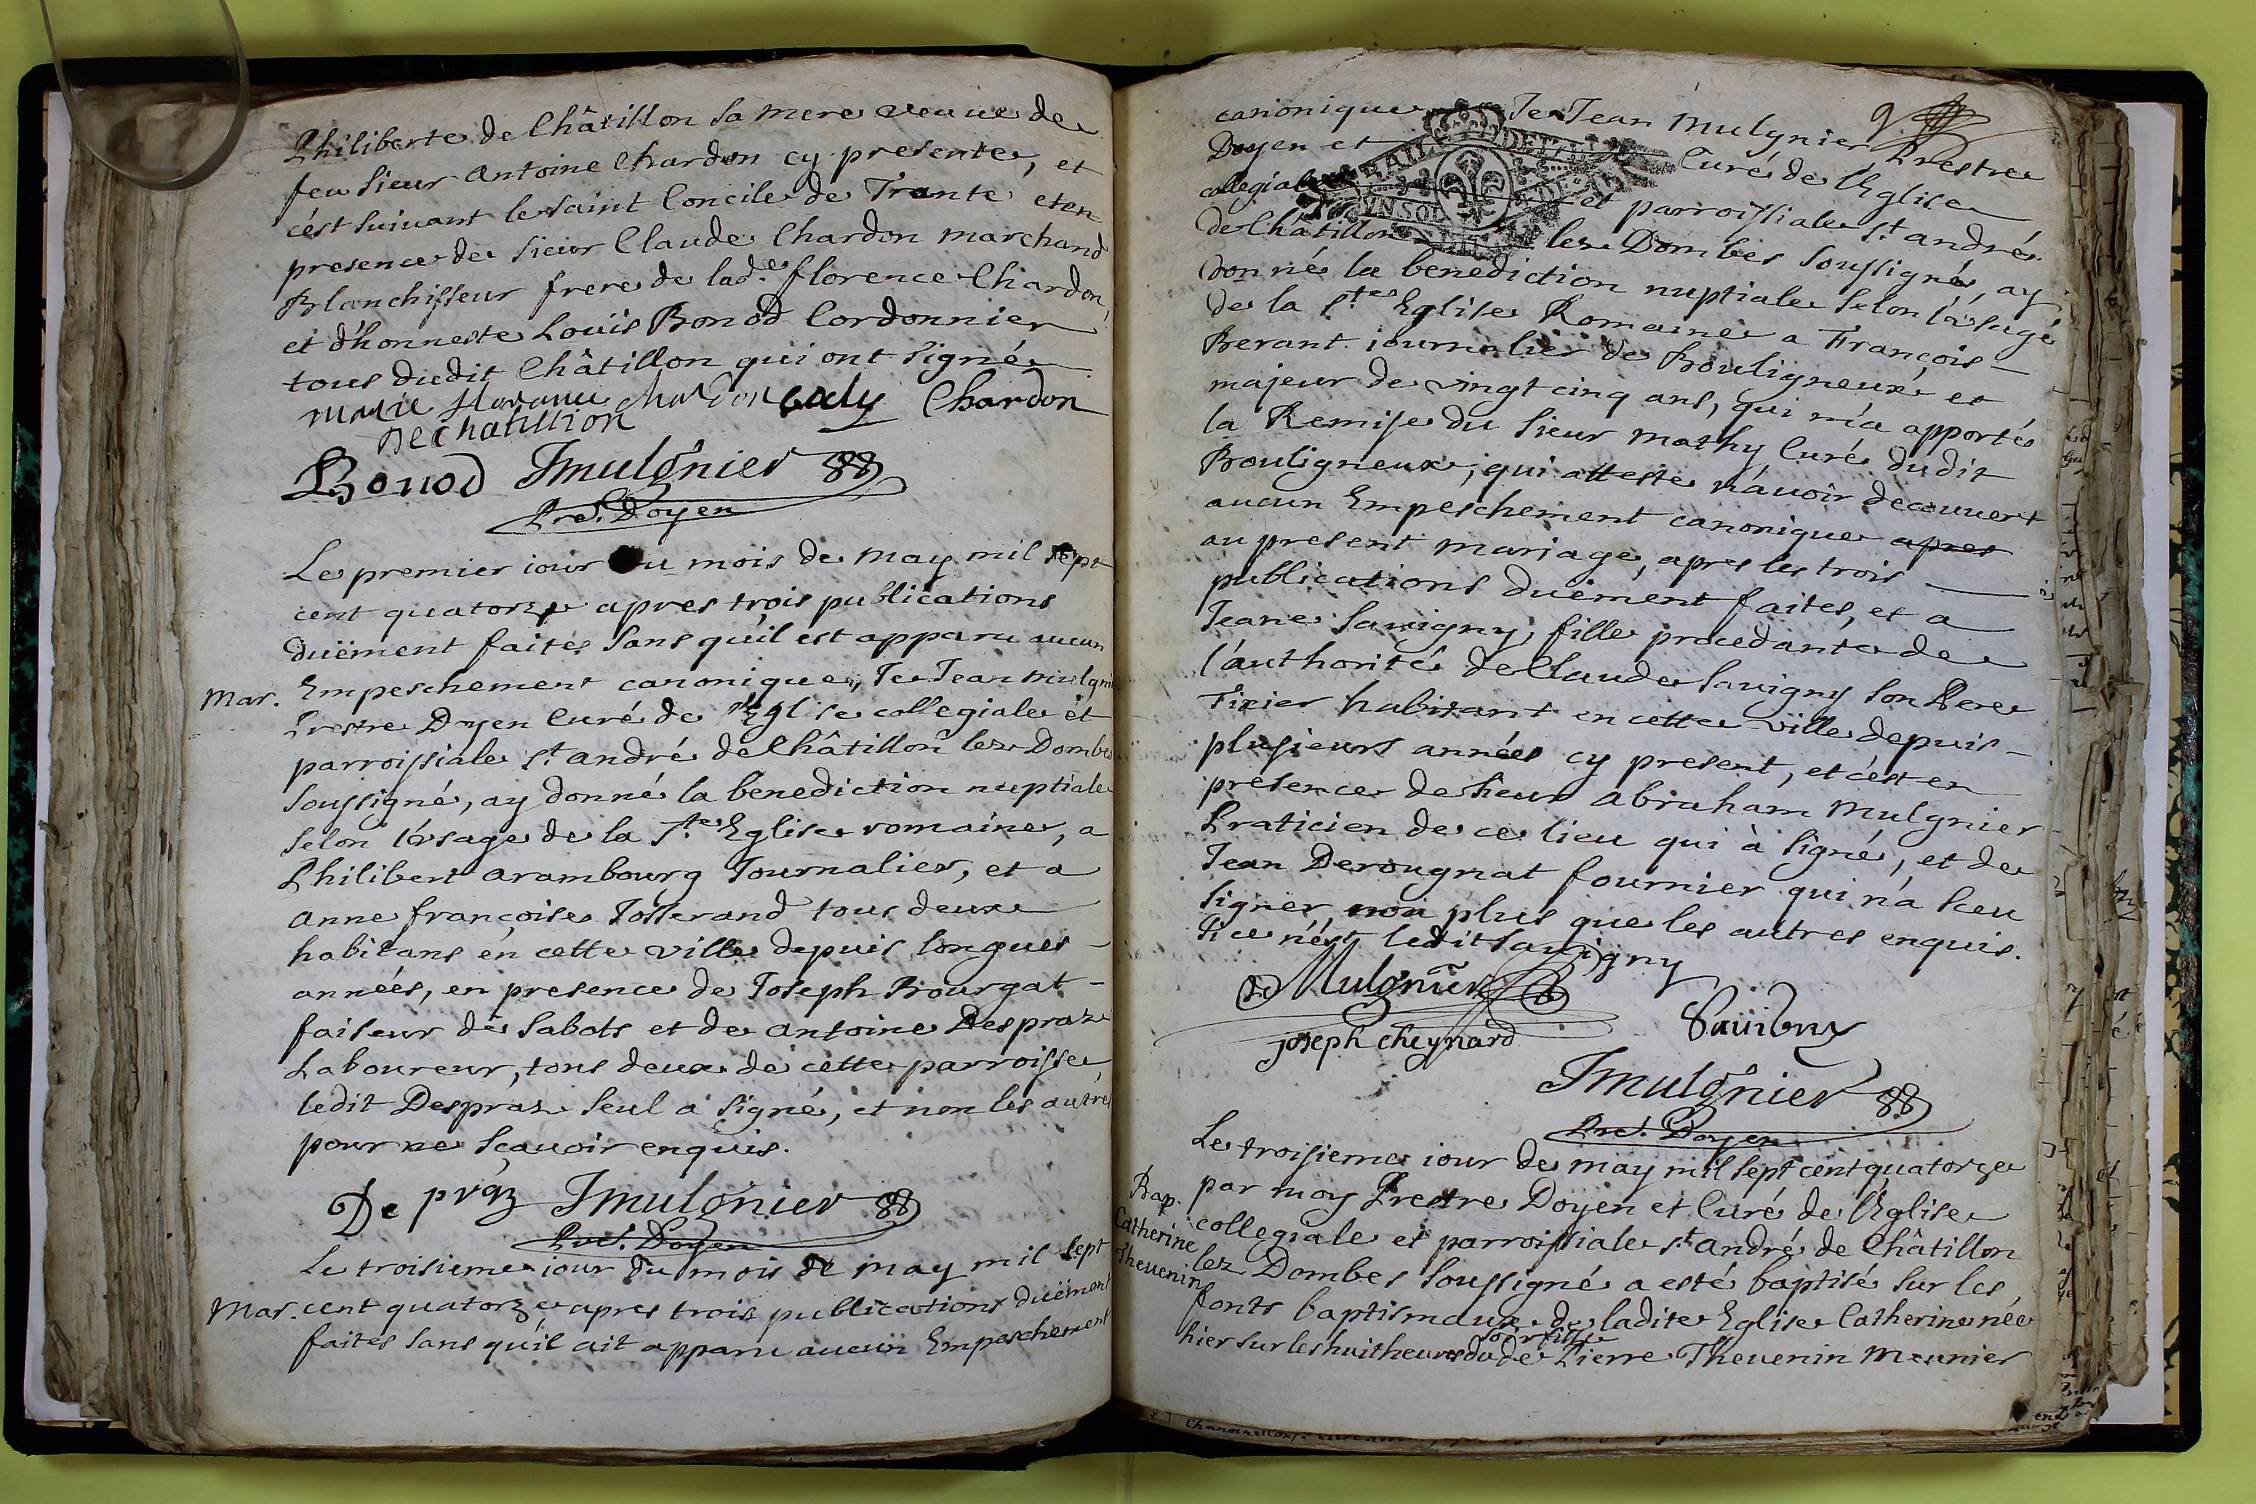 Philiberte de Châtillon sa mere veuue de
feu sieur Antoine Chardon cy presente, et
c'ést suiuant le saint Concile de Trante et en
presence de sieur Claude Chardon marchand
Blanchisseur frere de lad.e florence Chardon,
et d'honneste Loüis Bonod Cordonnier
tous dudit Châtillon qui ont signé
marie florance chardon cady Chardon
De chatillion
Bonod Jmulgnier
Pre. Doyen
Le premier iour du mois de may mil sept
cent quatorze apres trois publications
düëment faites sans qu'il est apparu aucun
Mar. Empeschement canonique, Je Jean mulgnier
Prestre Doyen Curé de l'Eglise collegiale et
parroissiale st andré de Châtillon lez Dombes
soussigné, ay donné la benediction nuptiale
selon l'vsage de la s.te Eglise romaine, a
Philibert arambourg Journalier, et a
anne françoise Josserand tous deux
habitans en cette ville depuis longues
années, en presence de Joseph Bourgat
faiseur de sabots et de antoine Despraz
Laboureur, tous deux de cette parroisse,
ledit Despraz seul a signé, et non les autres
pour ne sçauoir enquis.
De praz Jmulgnier
Pre. Doyen
Le troisieme iour du mois de may mil sept
Mar. cent quatorze apres trois publications düëment
faites sans qu'il ait apparu aucun Empeschement
9.
canonique Je Jean mulgnier Prestre
Doyen et Curé de l'Eglise
collegiale et parroissiale st andré
de Châtillon lez Dombes soussigné, ay
donné la benediction nuptiale selon l'vsage
de la s.te Eglise Romaine a François
Berant journalier de Bouligneux et
majeur de vingt cinq ans, qui m'a apporté
la Remise du sieur mathy Curé dudit
Bouligneux, qui atteste n'auoir decouuert
aucun Empeschement canonique apres
au present mariage, apres les trois
publications düement faites, et a
Jeane Sauigny, fille procedante de
l'authorité de Claude Sauigny son Pere
Tixier habitant en cette ville depuis
plusieurs années cy present, et c'ést en
presence de sieur Abraham Mulgnier
Praticien de ce lieu qui à signé, et de
Jean Derougnat fournier qui n'a sceu
signer, non plus que les autres enquis.
si ce n'ést ledit Sauigny
Mulgnier
joseph cheynard Sauigny
Jmulgnier
Pre. Doyen
Le troisieme iour de may mil sept cent quatorze
Bap. par moy Prestre Doyen et Curé de l'Eglise
Catherine collegiale et parroissiale st andré de Châtillon
Theuenin lez Dombes soussigné a esté baptisé sur les
fonts baptismaux de ladite Eglise Catherine née
hier sur les huit heures du soir fille de Pierre Theuenin meunier